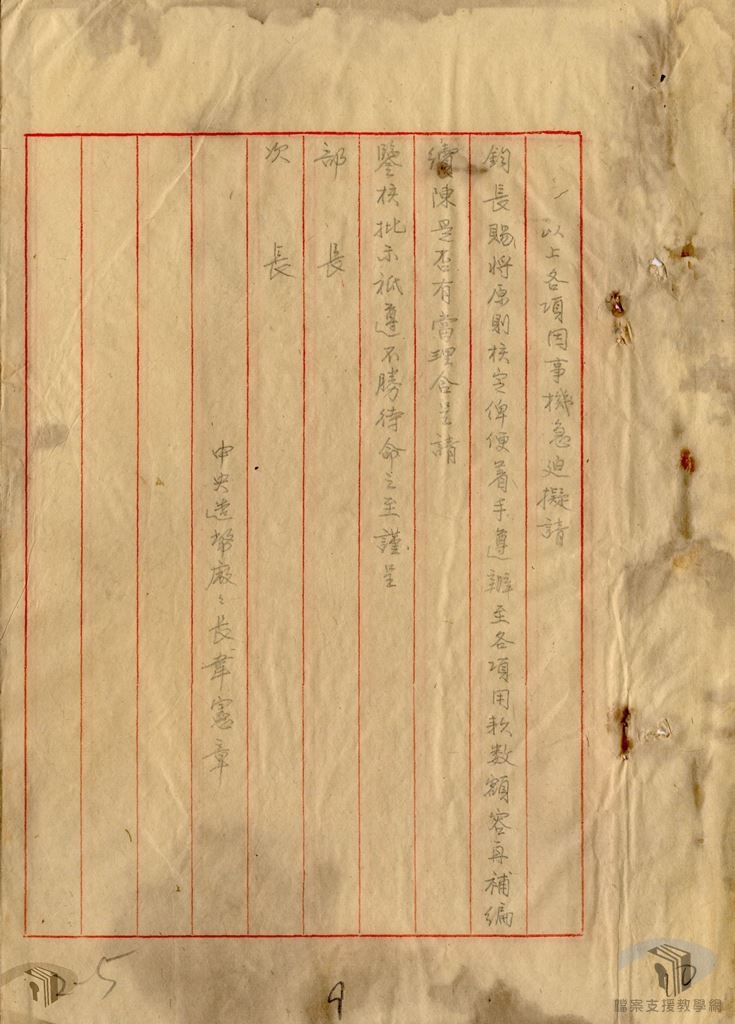 以上各項因事機急迫擬請
鈞長賜將原則核定俾便着手遵辦至各項用款數額容再補編
續陳是否有當理合呈請
鑒核批示祇遵不勝待命之至謹呈
部長
次長
中央造幣廠々長韋憲章
2-5
9
檔案支援教學網